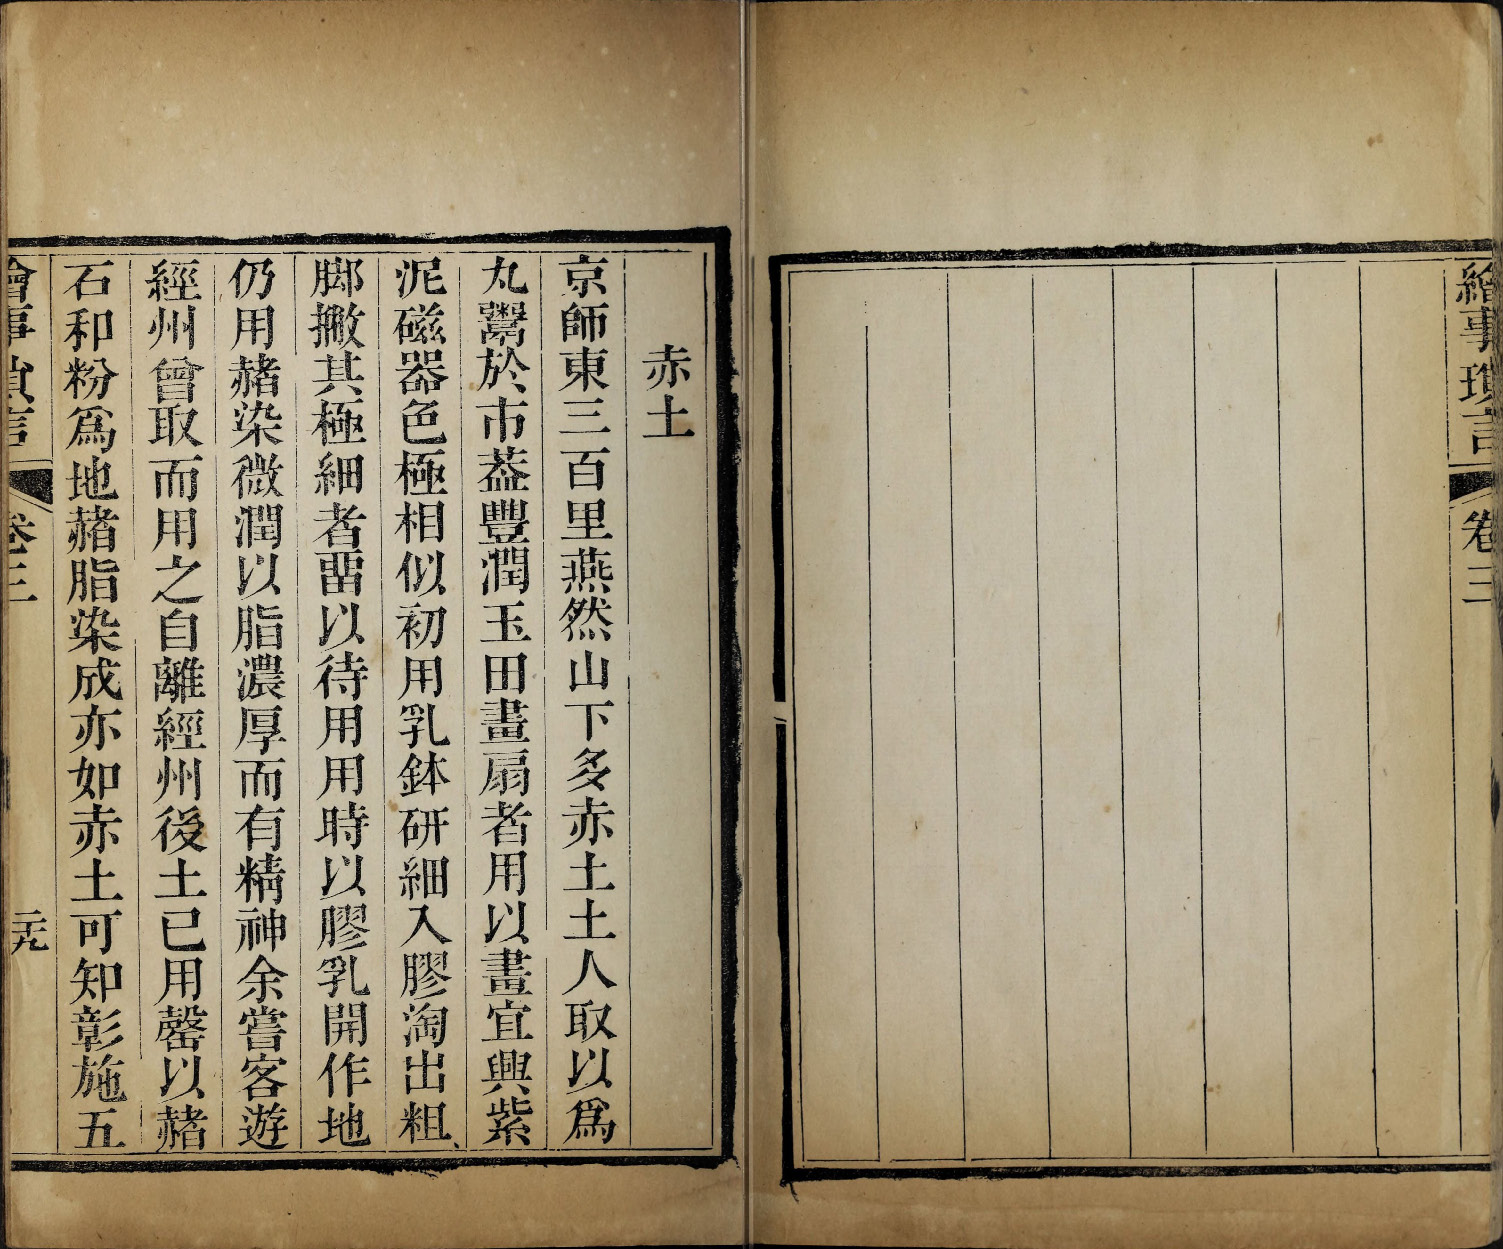 繪事瑣言
卷三
赤土
京師東三百里燕然山下多赤土土人取以爲
丸鬻於市葢豐潤玉田畫扇者用以畫宜興紫
泥磁器色極相似初用乳鉢研細入膠淘出粗
脚撇其極細者畱以待用用時以膠乳開作地
仍用赭染微潤以脂濃厚而有精神余嘗客遊
經州曾取而用之自離經州後土已用罄以赭
石和粉爲地赭脂染成亦如赤土可知彰施五
繪事瑣言
卷三
二十九